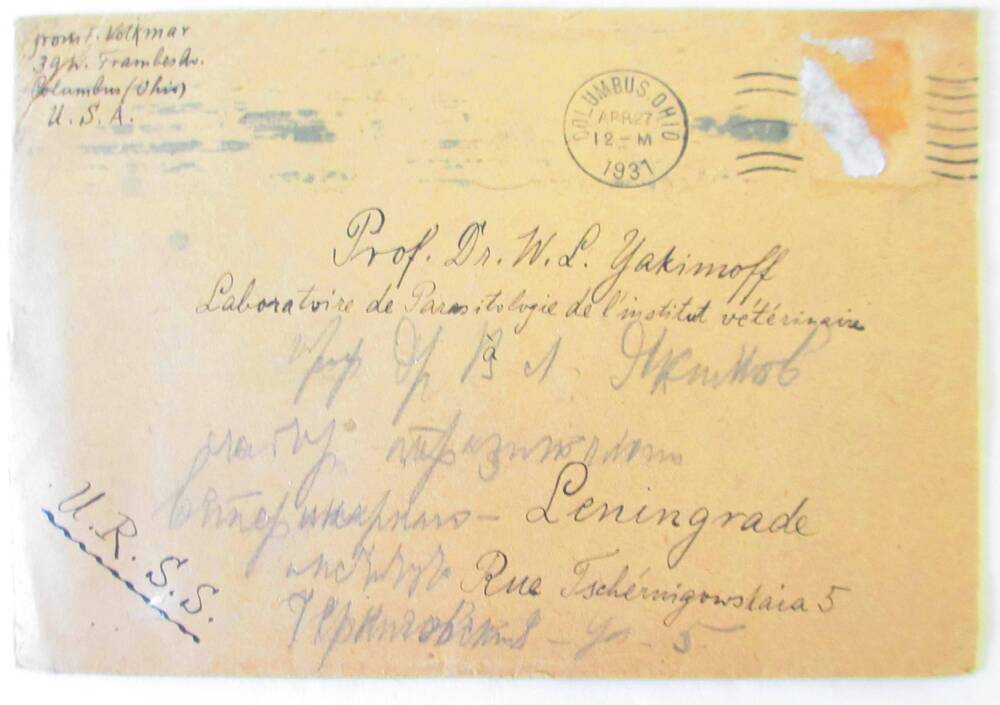 from F. Volkmar
39 W. Frambes Av.
Columbus (Ohio)
U. S. A.
COLUMBUS, OHIO
APR 27
12 - M
1931
Prof. Dr. W. L. Yakimoff
Laboratoire de Parasitologie de l'institut vétérinaire
à
Проф Др В Л. Якимов
паразитолог
Ветеринарного -
Leningrade
U. R. S. S.
Rue Tschérnigowskaia 5
Черниговская - ул - 5